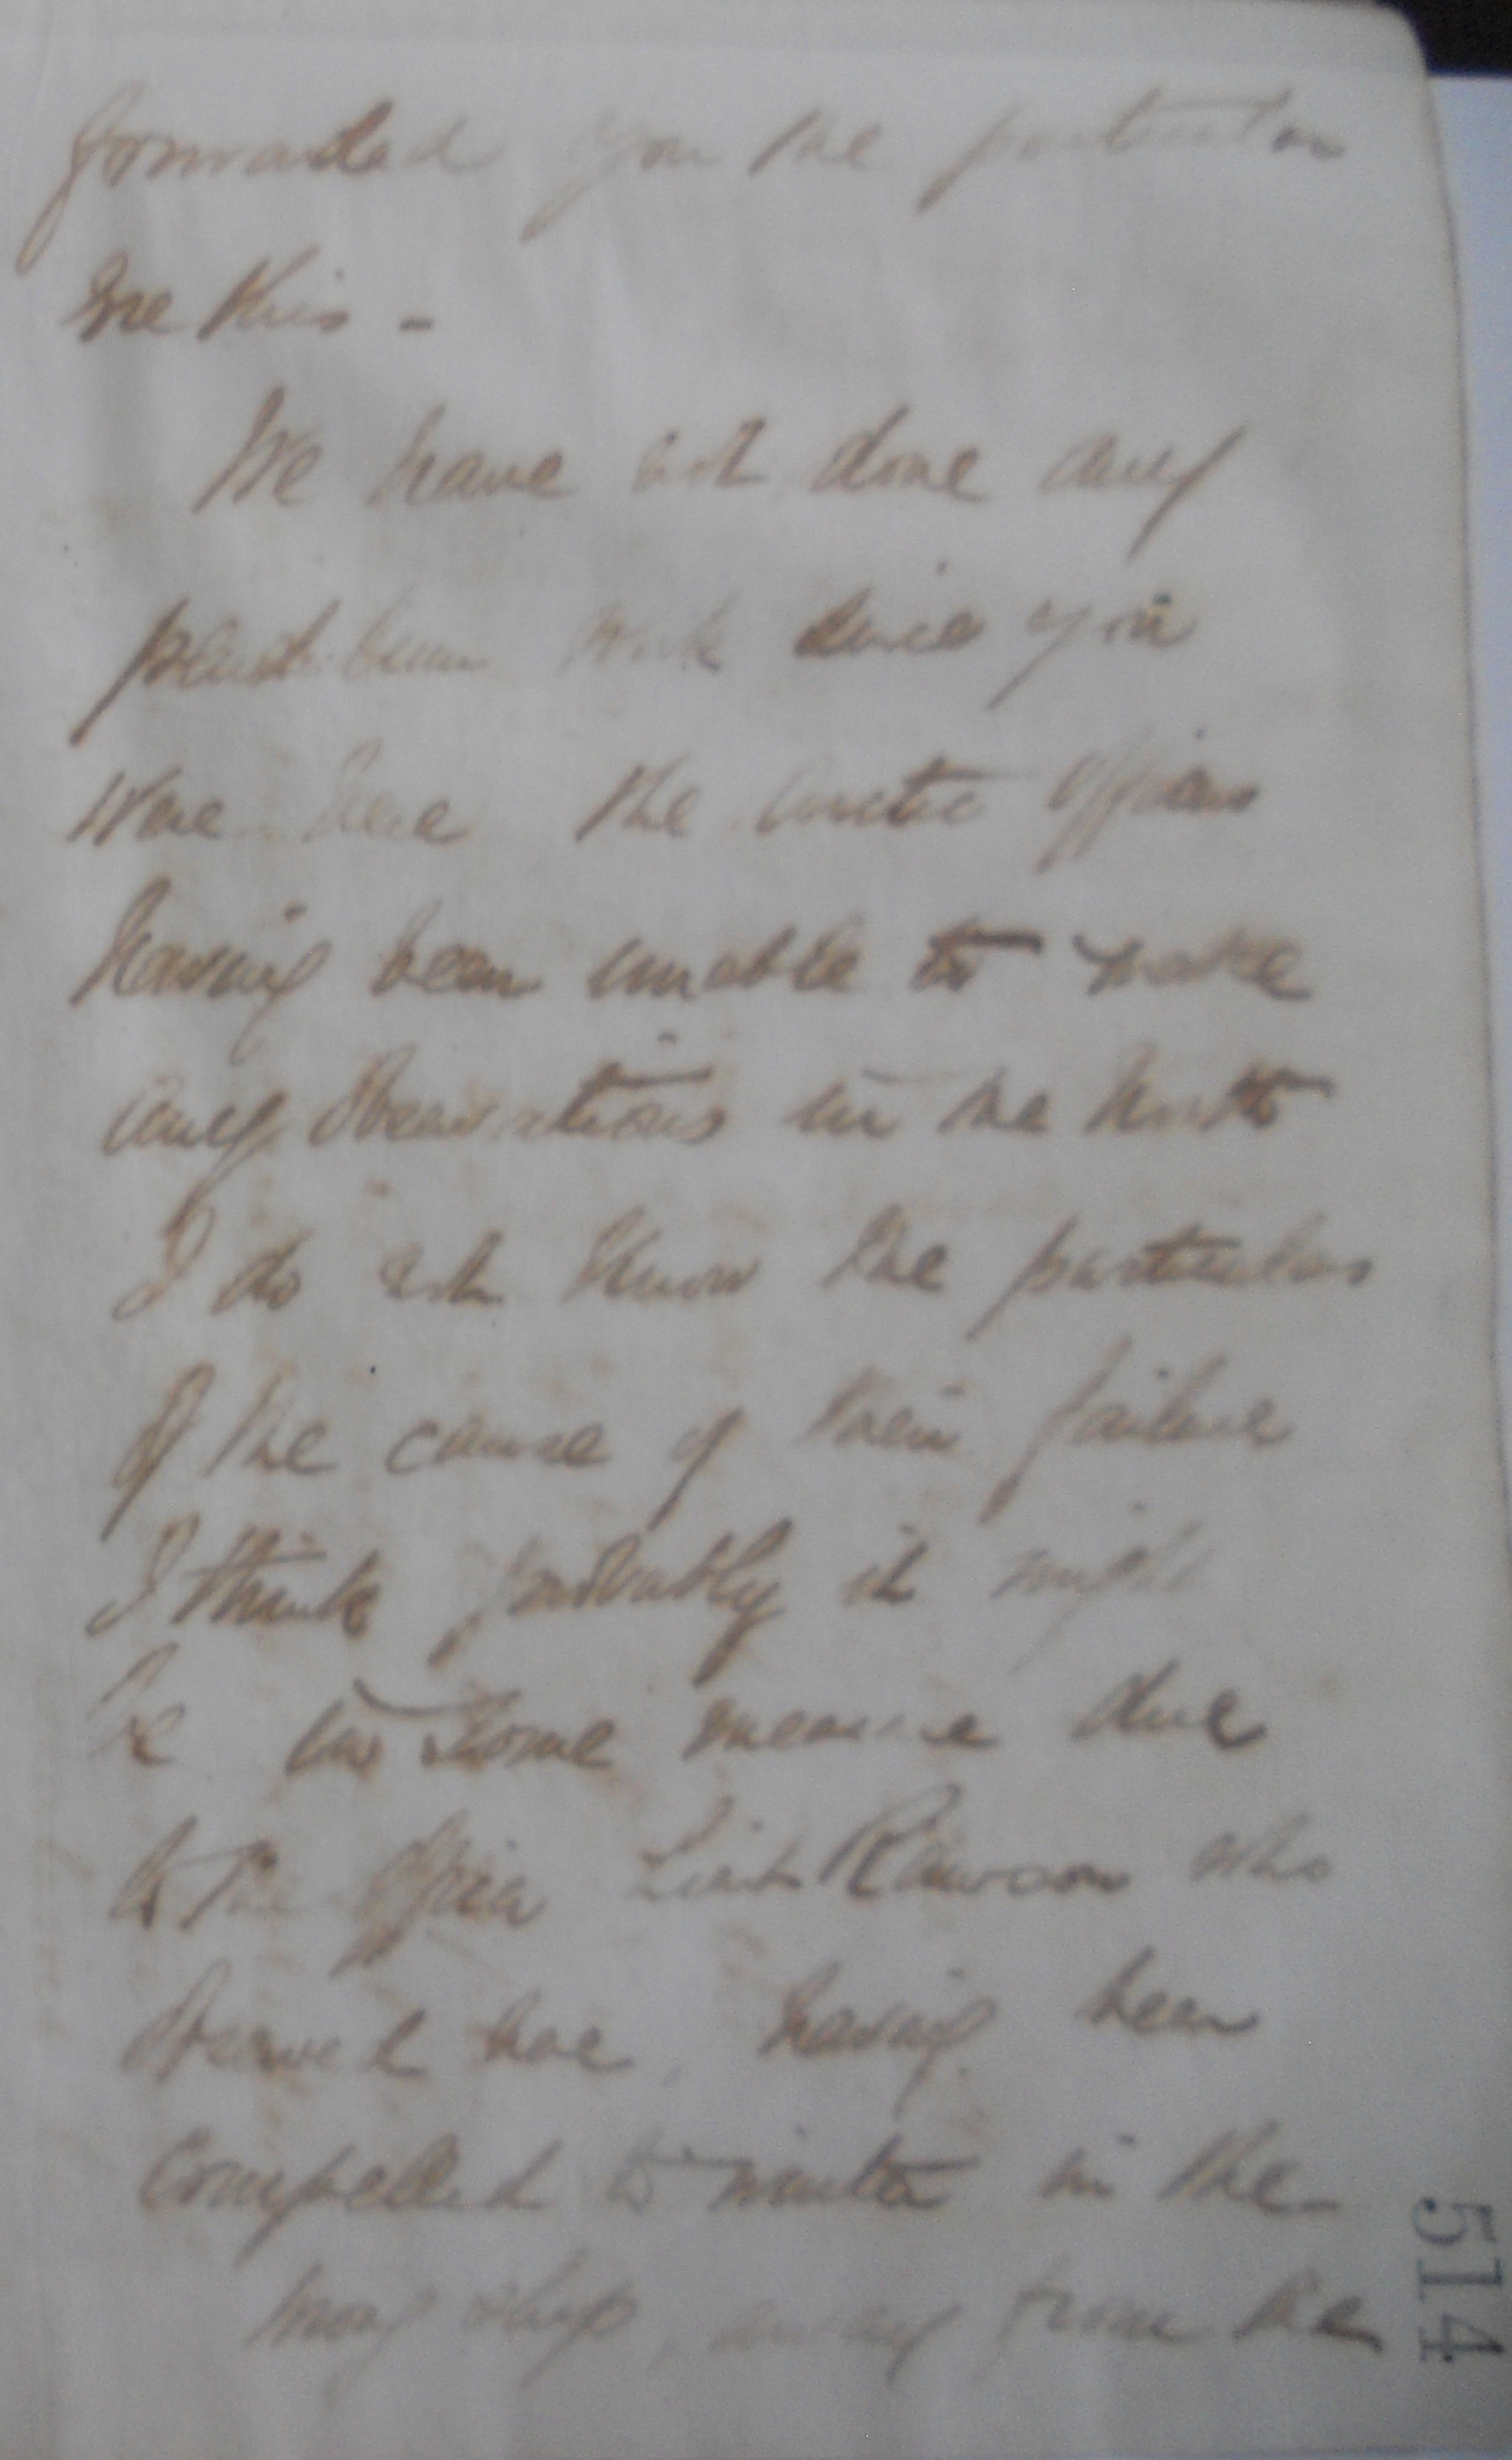 forwarded you the particulars
We have not done any
pendulum work since you
were here the Arctic Officers
having been unable to make
any observations in the North
I do not know the particulars
of the cause of their failure
I think probably it might
be in some measure due
to the Officer Lieut Rawson who
observed here, having been
compelled to winter in the
wrong ship, away from the
514